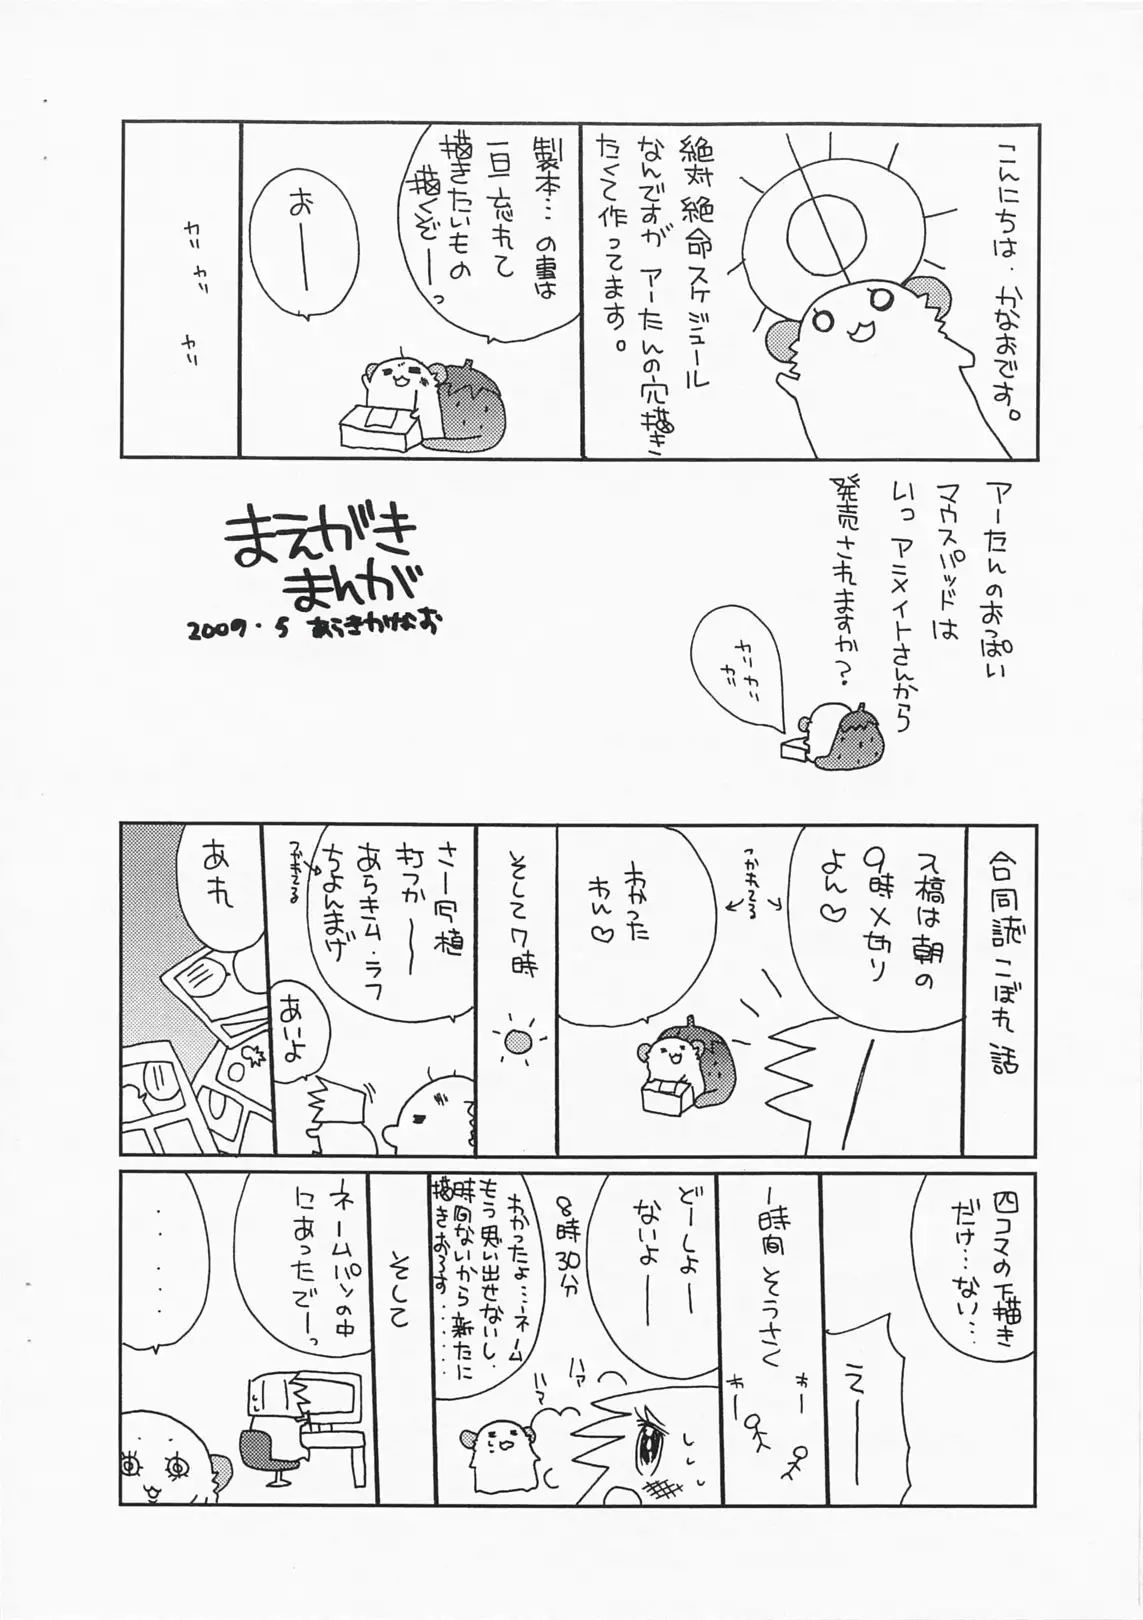 こんにちは、かなおです。
絶対絶命スケジュール
なんですが アーたんの穴描き
たくて作ってます。
製本…の事は
一旦忘れて
描きたいもの
描くぞーっ
おーー
カリ
カリ
カリ
アーたんのおっぱい
マウスパッドは
いつ アニメイトさんから
発売されますか?
カリカリ
カリ
まえがき
まんが
2009.5 あらきかなお
合同誌こぼれ話
入稿は朝の
9時〆切り
よん♡
つかれてる
わかった
わん♡
そして7時
さー写植
打つかーー
あらきム・ラフ
ちょんまげ
つかれてる
あいよ
あれ
四コマの下描き
だけ…ない…
えーー
1時間そうさく
わー
わー
どーしよー
ないよーー
ハァ
ハァ
8時30分
わかったよ…ネーム
もう思い出せないし、
時間ないから新たに
描きおろす……
そして
ネームパンの中
にあったでーっ
・・・・